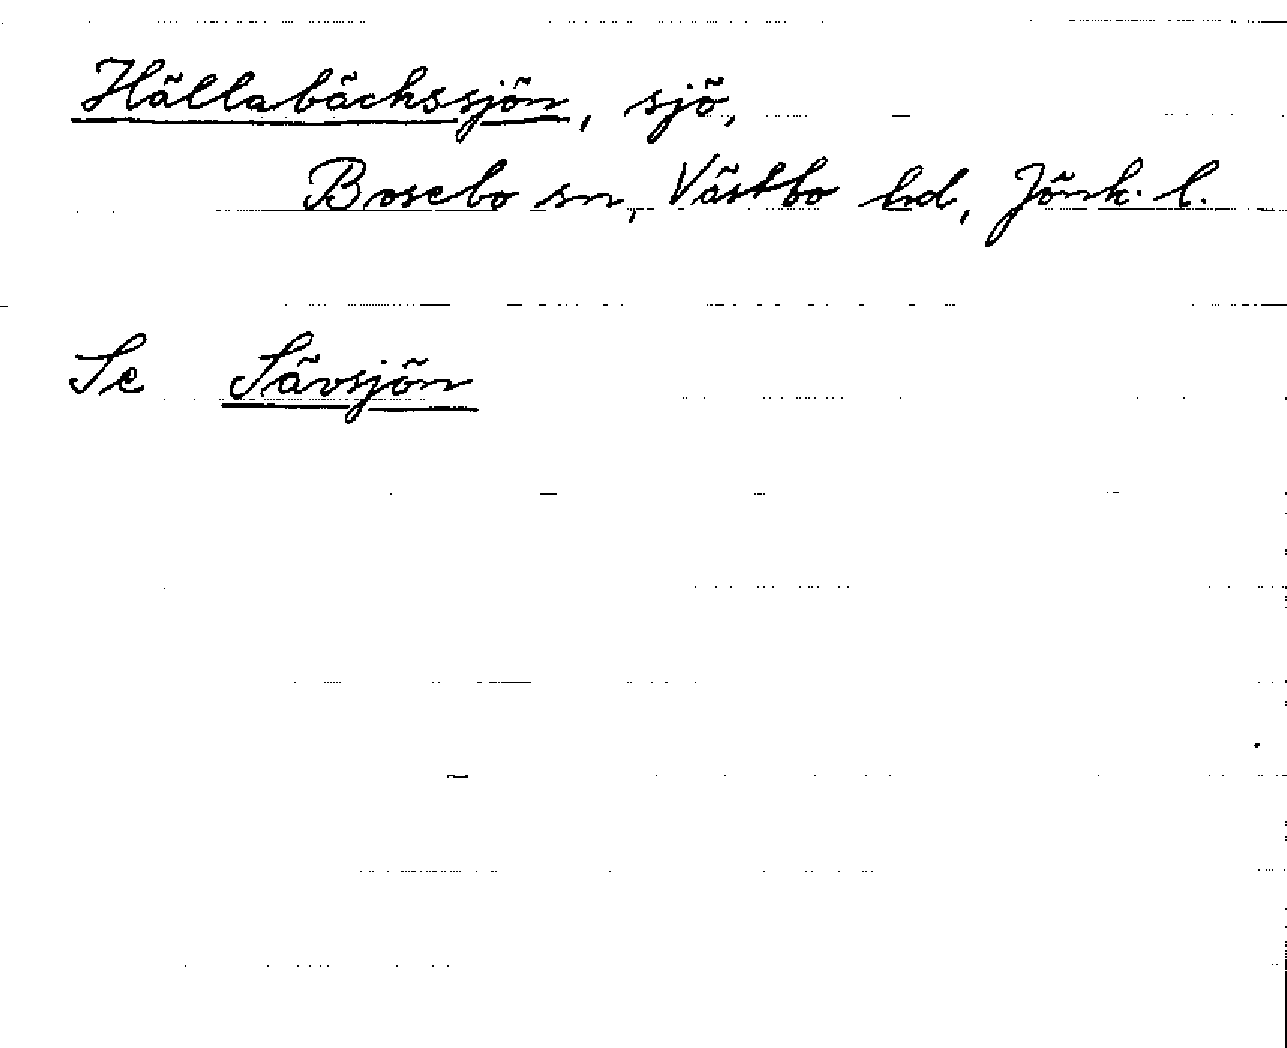 Hällabäckssjön, sjö,
Bosebo sn, Västbo hd, Jönk. l.
Se Sävsjön